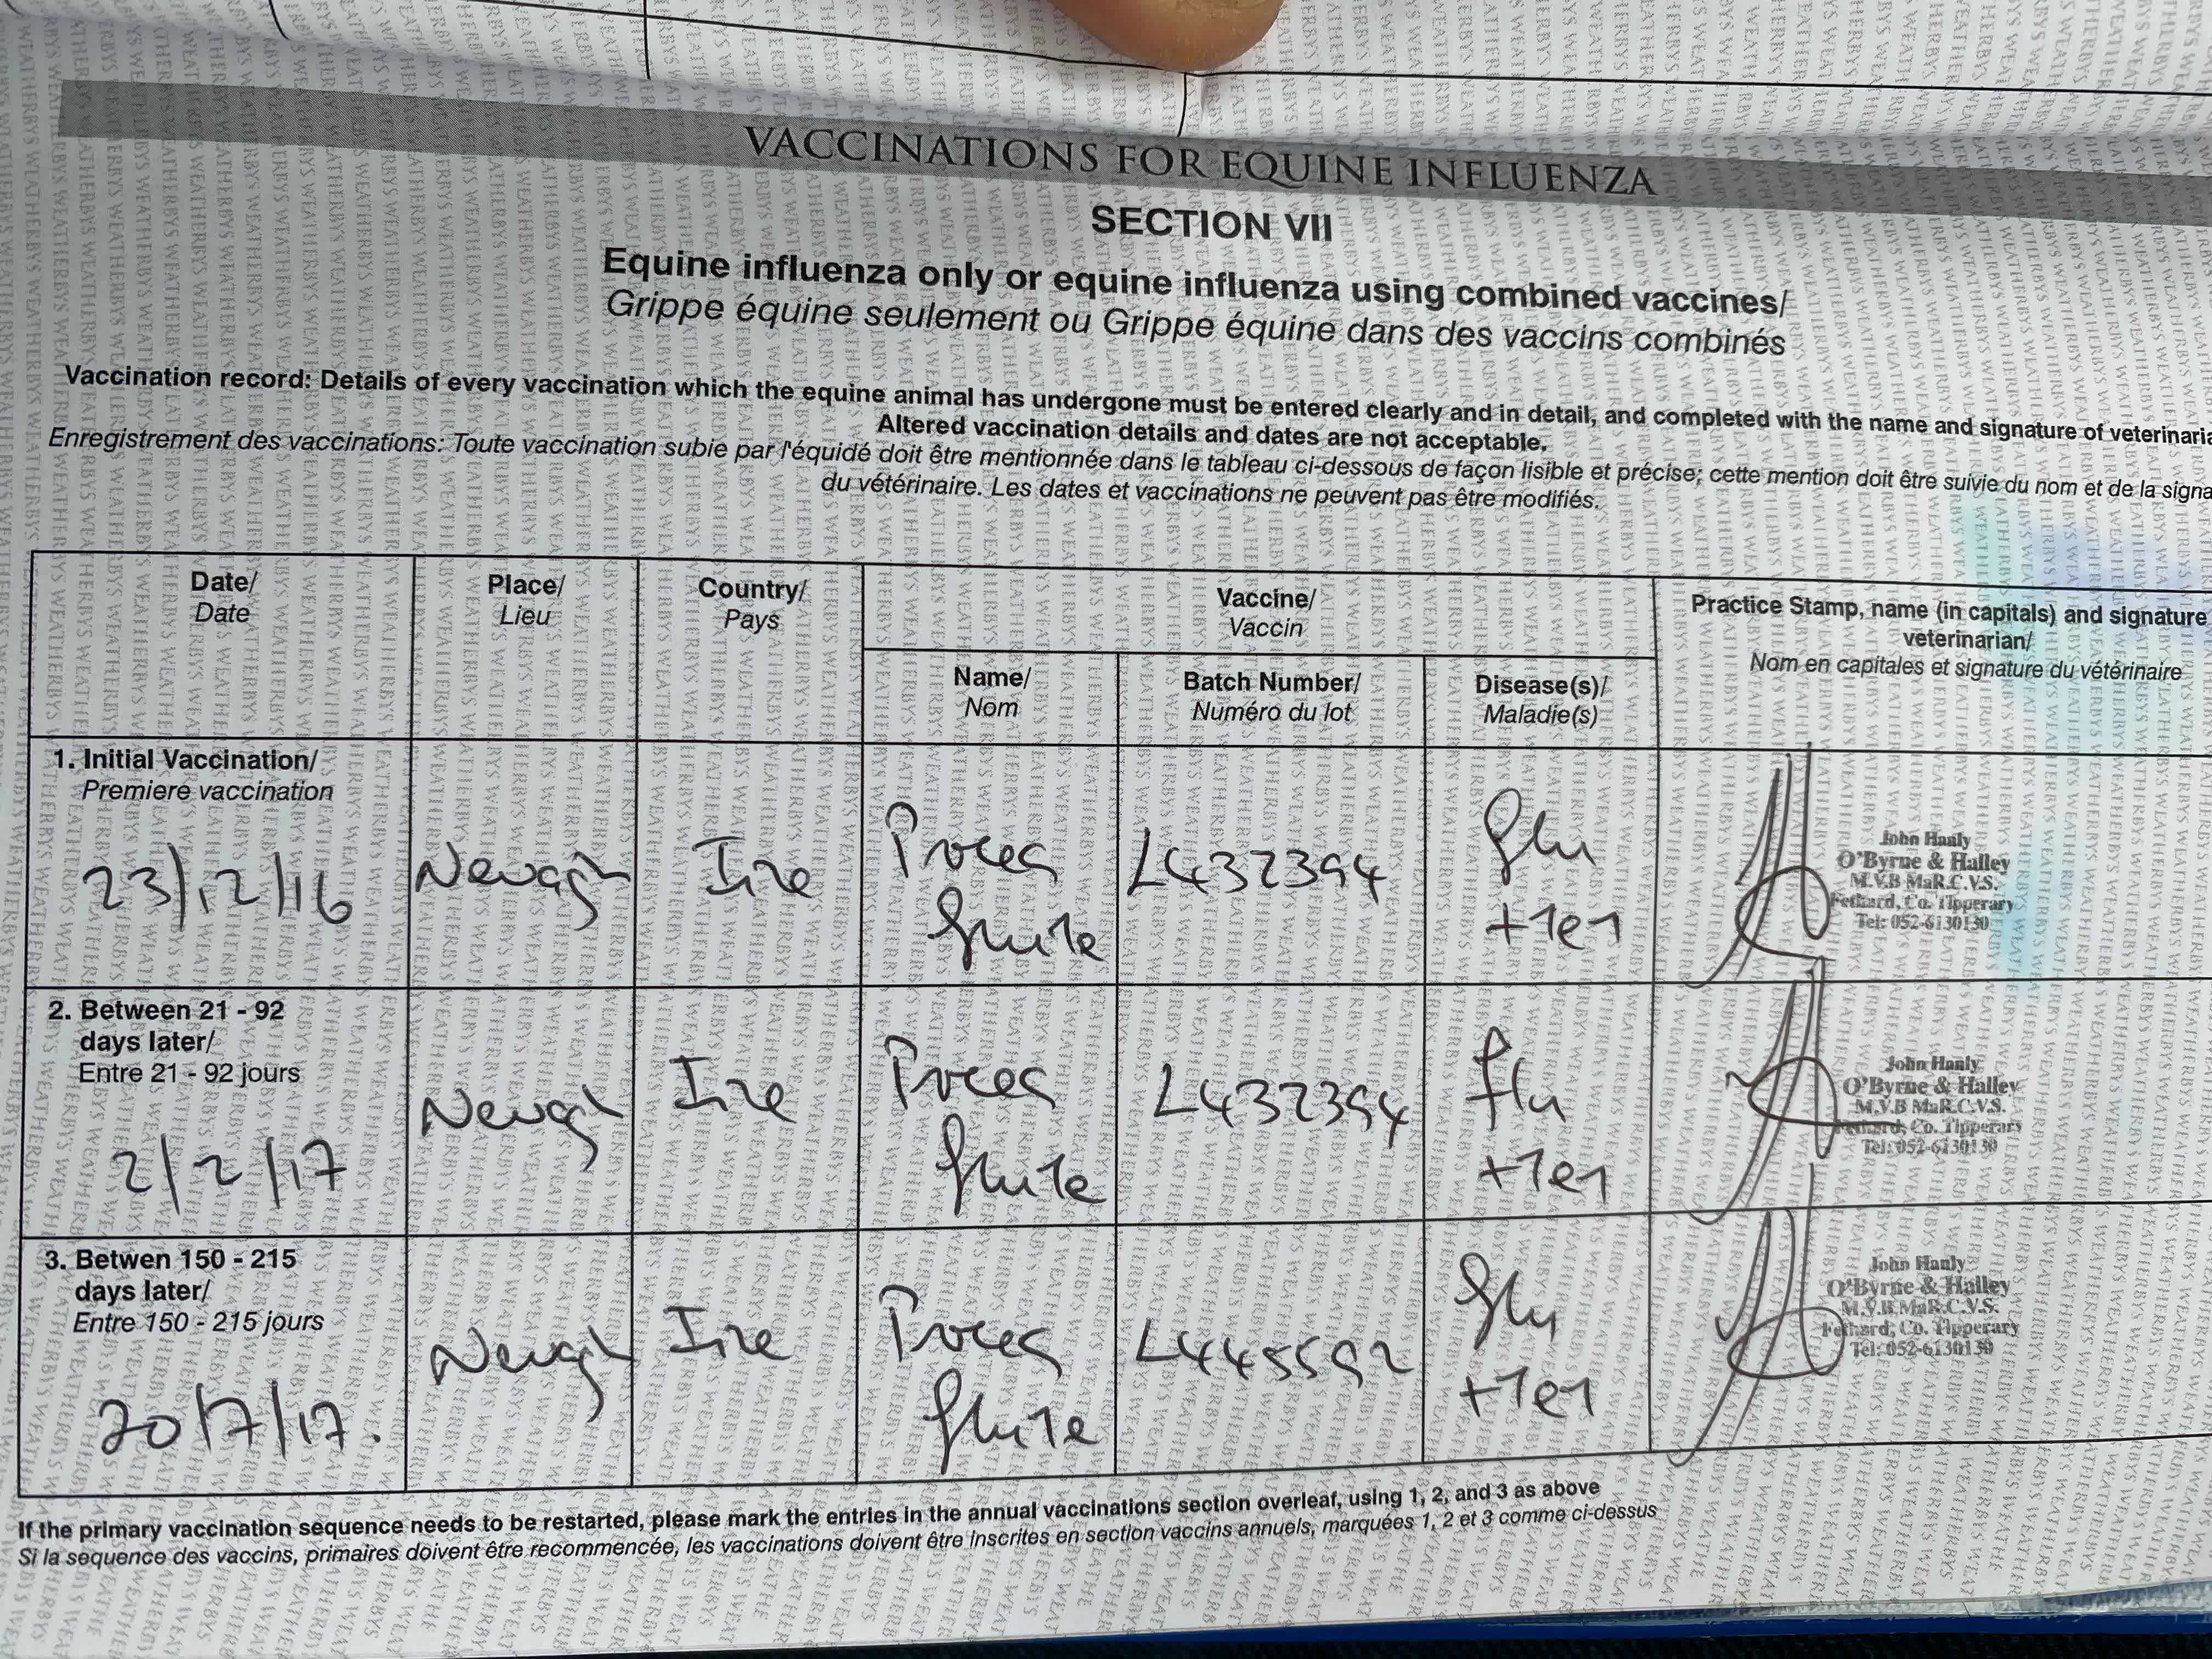 VACCINATIONS FOR EQUINE INFLUENZA
SECTION VII
Equine influenza only or equine influenza using combined vaccines/
Grippe équine seulement ou Grippe équine dans des vaccins combinés
Vaccination record: Details of every vaccination which the equine animal has undergone must be entered clearly and in detail, and completed with the name and signature of
Altered vaccination details and dates are not acceptable.
Enregistrement des vaccinations: Toute vaccination subie par l'équidé doit être mentionnée dans le tableau ci-dessous de façon lisible et précise; cette mention doit être suivie du nom et de la
du vétérinaire. Les dates et vaccinations ne peuvent pas être modifiés.
Date/
Date
Place/
Lieu
Country/
Pays
Vaccine/
Vaccin
Name/
Nom
Batch Number/
Numéro du lot
Disease(s)/
Maladie(s)
Practice Stamp, name (in capitals) and signature
veterinarian/
Nom en capitales et signature du vétérinaire
1. Initial Vaccination/
Premiere vaccination
23/12/16
Ire
L432394
flu
+ Tet
John Hanly
O'Byrne & Halley
M.V.B MaR.C.V.S.
Fethard, Co. Tipperary
Tel: 052-6130130
2. Between 21 - 92
days later/
Entre 21 - 92 jours
2/2/17
Ire
L432394
flu
+ Tet
John Hanly
O'Byrne & Halley
M.V.B MaR.C.V.S.
Fethard, Co. Tipperary
Tel: 052-6130130
3. Betwen 150 - 215
days later/
Entre 150 - 215 jours
20/7/17.
Ire
L445592
flu
+ Tet
John Hanly
O'Byrne & Halley
M.V.B MaR.C.V.S.
Fethard, Co. Tipperary
Tel: 052-6130130
If the primary vaccination sequence needs to be restarted, please mark the entries in the annual vaccinations section overleaf, using 1, 2, and 3 as above
Si la sequence des vaccins, primaires doivent être recommencée, les vaccinations doivent être inscrites en section vaccins annuels, marquées 1, 2 et 3 comme ci-dessus